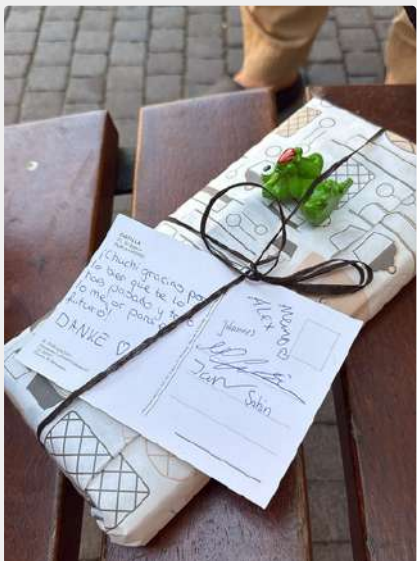 ¡Chuchi gracias por
lo bien que te lo
has pasado y todo
lo mejor para el
futuro!
DANKE ♡
Memoo
ALEX
Johannes
Jan
Sabin